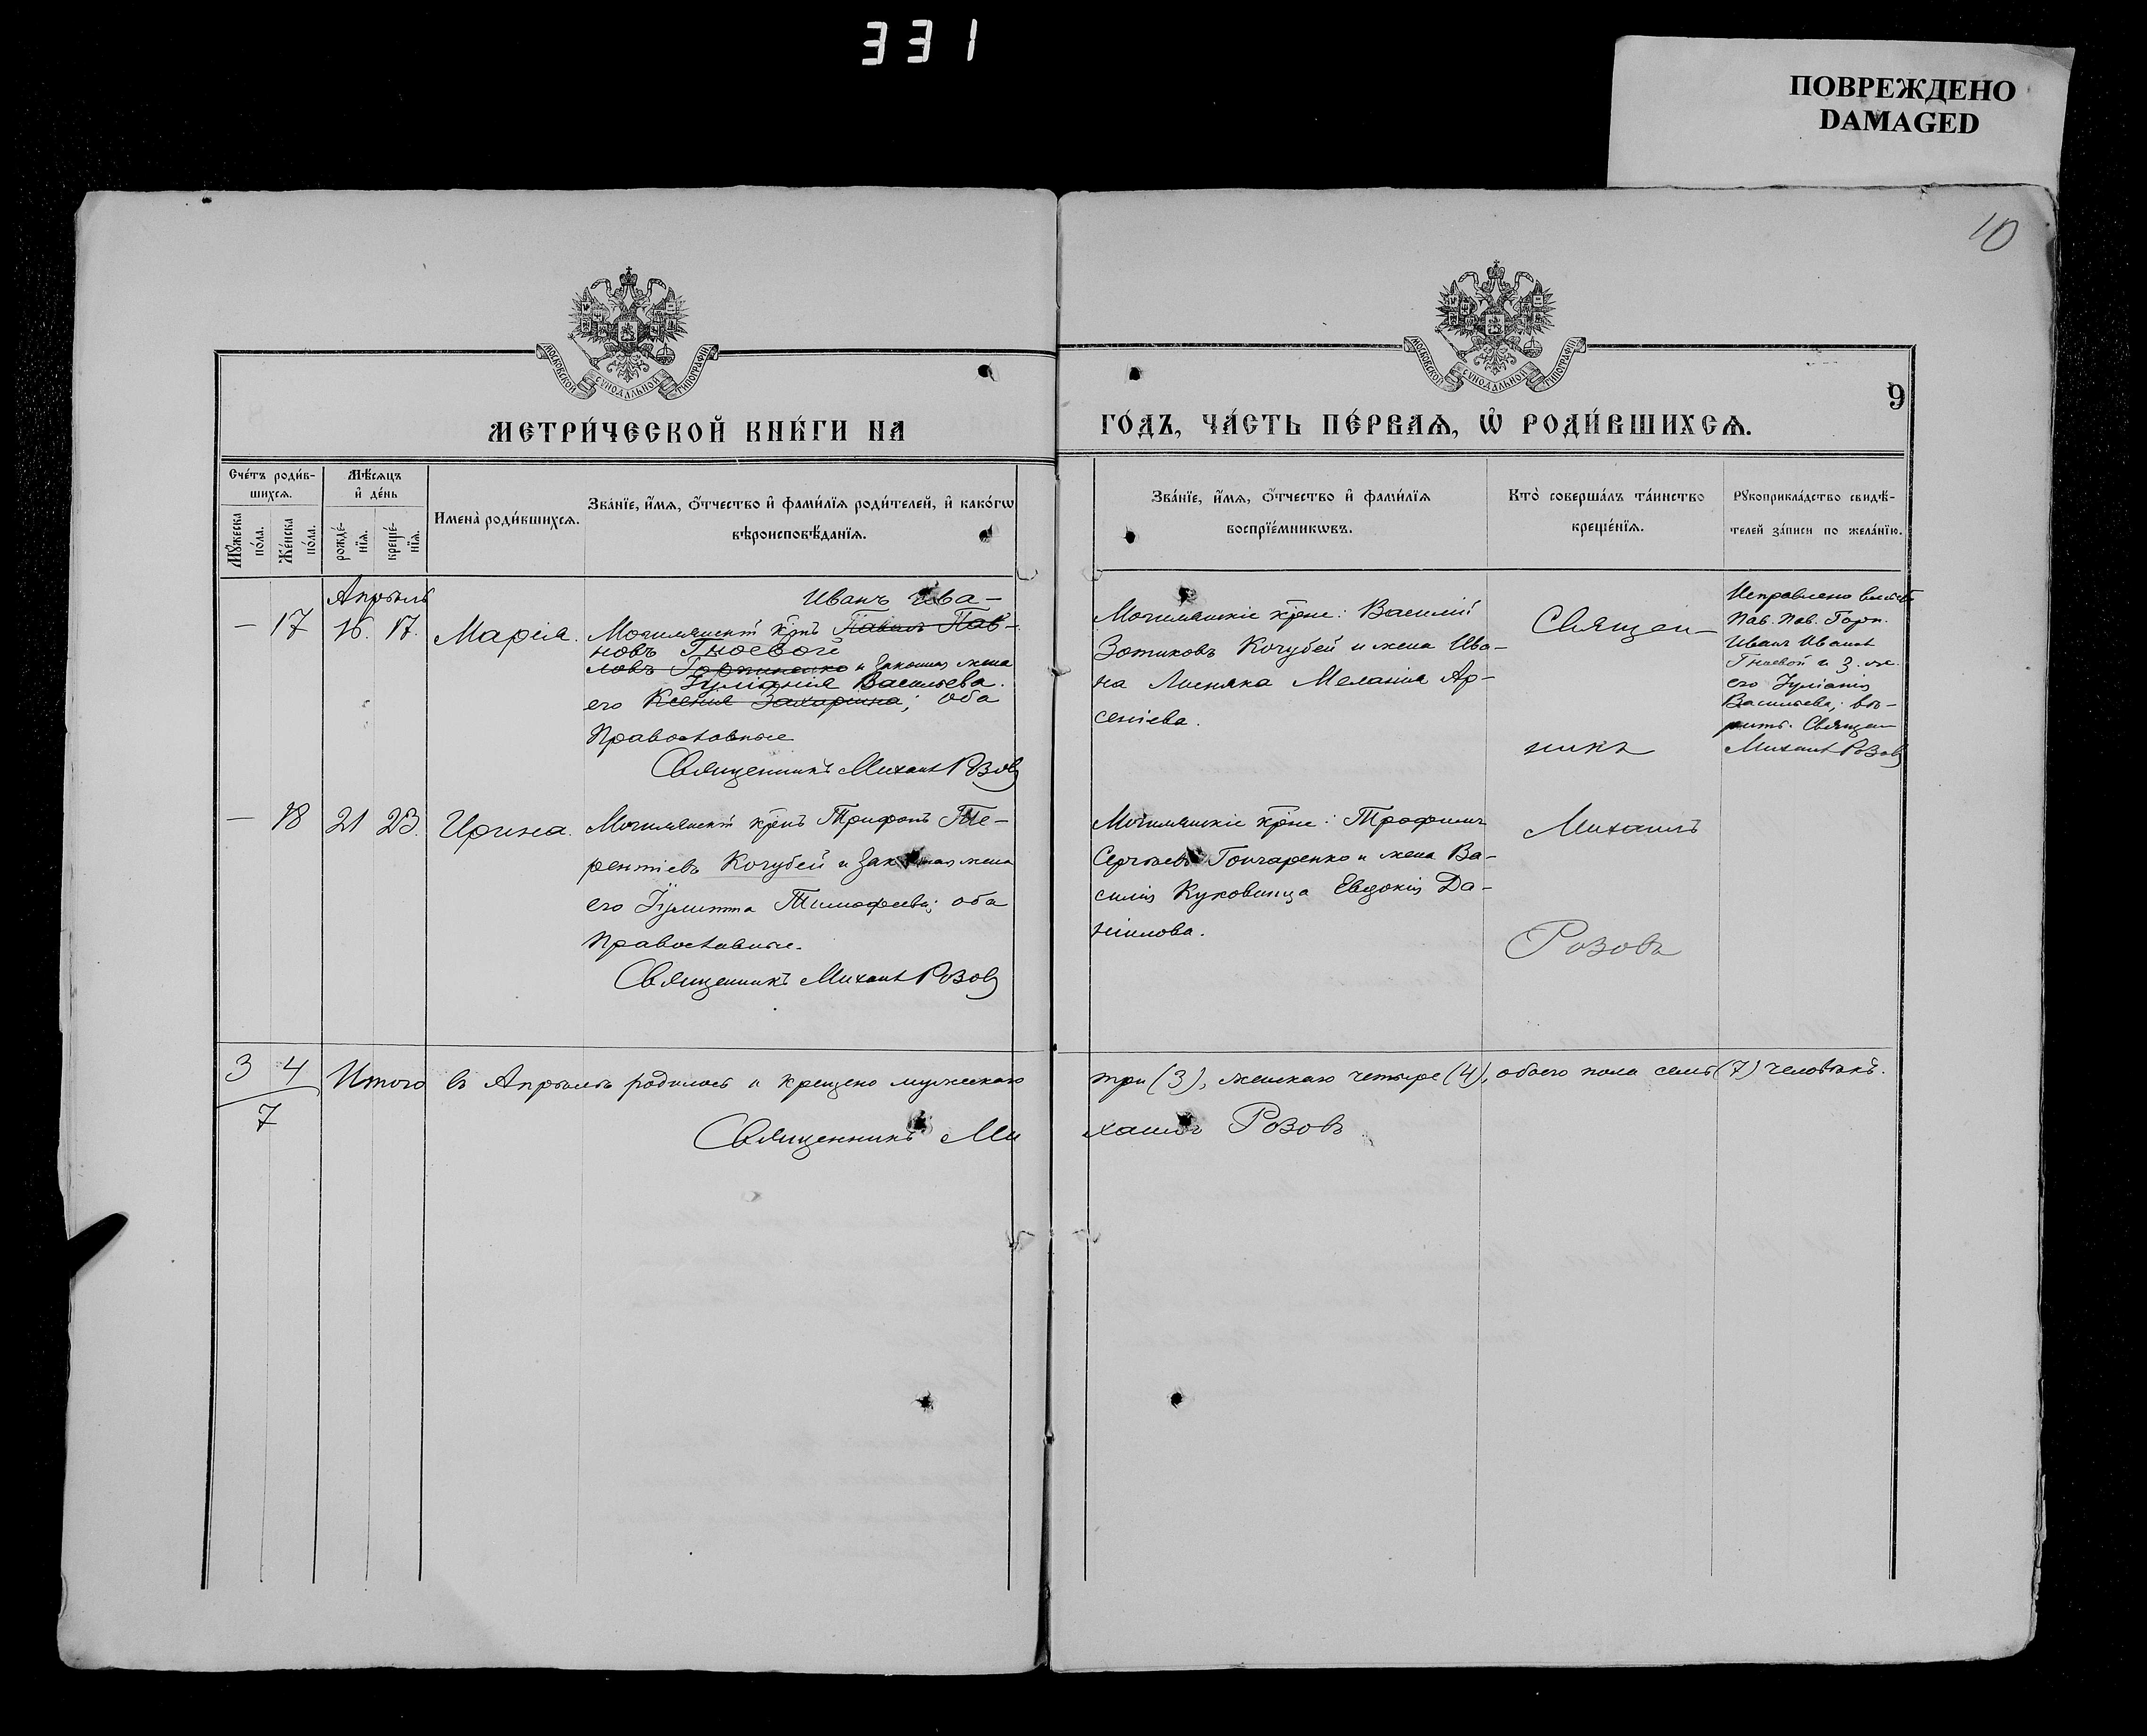 331
ПОВРЕЖДЕНО
DAMAGED
10
МОСКОВСКОЙ СѴНОДАЛЬНОЙ ТИПОГРАФІИ
МОСКОВСКОЙ СѴНОДАЛЬНОЙ ТИПОГРАФІИ
9
МЕТРИ́ЧЕСКОЙ КНИ́ГИ НА
ГО́ДЪ, ЧА́СТЬ ПЕ́РВАѦ, Ѡ҆ РОДИ́ВШИХСѦ.
Сче́тъ роди́в-
шихсѧ.
Мѣ́сяцъ
и҆ де́нь
Мꙋ́жеска
по́ла.
Же́нска
по́ла.
рожде́-
нїѧ.
креще́-
нїѧ.
Имена̀ роди́вшихсѧ.
Зва́нїе, и҆́мѧ, ѻ҆́тчество и҆ фами́лїѧ роди́телей, и҆ како́гѡ
вѣроисповѣ́данїѧ.
Зва́нїе, и҆́мѧ, ѻ҆́тчество и҆ фами́лїѧ
воспрїе́мникѡвъ.
Кто̀ соверша́лъ та́инство
креще́нїѧ.
Рꙋкоприкла́дство свидѣ́-
телей за́писи по жела́нїю.
Апрѣль
— 17 16. 17. Марія.
Иванъ Ива-
Могилянскій крнъ Павелъ Пав-
новъ Гноевой
ловъ Горпиненко и законная жена
Іуліанія Васильева.
его Ксенія Захаріина; оба
Православные
Священникъ Михаилъ Розовъ
Могилянскіе крне: Василій
Зотиковъ Кочубей и жена Ива-
на Лисняка Меланія Ар-
сеніева.
Священ-
никъ
Исправлено вмѣсто
Пав. Пав. Горп.
Иванъ Иванов
Гноевой и з. ж.
его Іуліанія
Васильева; вѣ-
рить. Священ
Михаилъ Розовъ
— 18 21 23. Ирина.
Могилянскій крнъ Трифонъ Те-
рентіевъ Кочубей и законная жена
его Іулитта Тимофеева; оба
Православные.
Священникъ Михаилъ Розовъ
Могилянскіе крне: Трофимъ
Сергѣевъ Гончаренко и жена Ва-
силія Куковинца Евдокія Да-
ніилова.
Михаилъ
Розовъ
3 4 Итого въ Апрѣлѣ родилось и крещено мужескаго
три (3), женскаго четыре (4), обоего пола семь (7) человѣкъ.
7
Священникъ Ми
хаилъ Розовъ